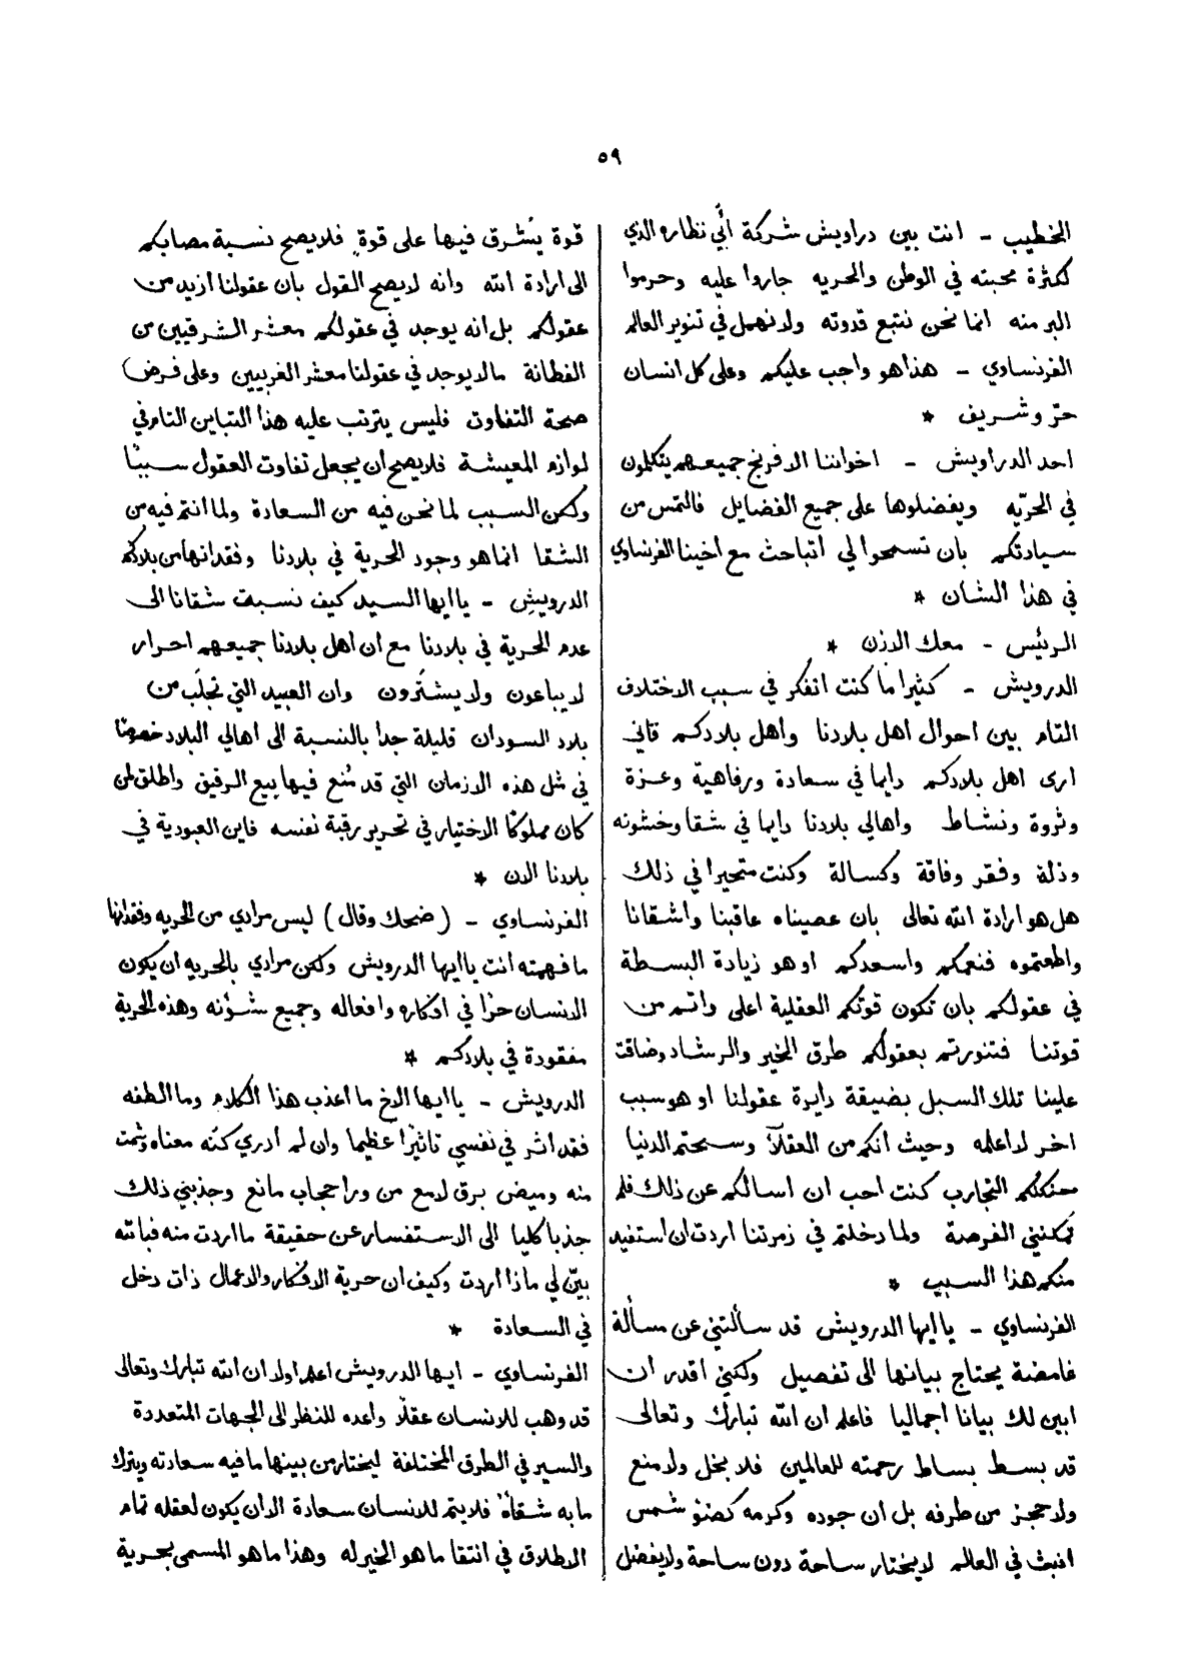 ٥٩
الخطيب - انت بين دراويش شركة أبي نظاره الذي
لكثرة محبته في الوطن والحريه جاروا عليه وحرموا
البر منه انما نحن نتبع قدوته ولا نهمل في تنوير العالم
الفرنساوي - هذا هو واجب عليكم وعلى كل انسان
حرّ وشريف *
احد الدراويش - اخواننا الافرنج جميعهم يتكلمون
في الحرّيه ويفضلوها على جميع الفضايل فالتمس من
سيادتكم بان تسمحوا لي أتباحث مع أخينا الفرنساوي
في هذا الشان *
الرئيس - معك الاذن *
الدرويش - كثيرا ما كنت اتفكر في سبب الاختلاف
التام بين احوال اهل بلادنا وأهل بلادكم فاني
ارى اهل بلادكم دايما في سعادة ورفاهية وعزة
وثروة ونشاط واهالي بلادنا دايما في شقا وخشونه
وذلة وفقر وفاقة وكسالة وكنت متحيرا في ذلك
هل هو ارادة الله تعالى بان عصيناه عاقبنا واشقانا
واطعتموه فنعمكم واسعدكم او هو زيادة البسطة
في عقولكم بان تكون قوتكم العقلية اعلى واتم من
قوتنا فتنورتم بعقولكم طرق الخير والرشاد وضاقت
علينا تلك السبل بضيقة دايرة عقولنا او هو سبب
اخر لا اعلمه وحيث انكم من العقلآ وسحتم الدنيا
حنكتكم التجارب كنت احب ان اسالكم عن ذلك فلم
تمكنني الفرصة ولما دخلتم في زمرتنا اردت ان استفيد
منكم هذا السبب *
الفرنساوي - يا ايها الدرويش قد سألتني عن مسألة
غامضة يحتاج بيانها الى تفصيل ولكني اقدر ان
ابين لك بيانا اجماليا فاعلم ان الله تبارك وتعالى
قد بسط بساط رحمته للعالمين فلا بخل ولا منع
ولا حجز من طرفه بل ان جوده وكرمه كضؤ شمس
انبث في العالم لا يختار ساحة دون ساحة ولا يفضل
قوة يُشرق فيها على قوةٍ فلا يصح نسبة مصابكم
الى ارادة الله وانه لا يصح القول بان عقولنا ازيد من
عقولكم بل انه يوجد في عقولكم معشر الشرقيين من
الفطانة ما لا يوجد في عقولنا معشر الغربيين وعلى فرض
صحة التفاوت فليس يترتب عليه هذا التباين التام في
لوازم المعيشة فلا يصح ان يجعل تفاوت العقول سببًا
ولكن السبب لما نحن فيه من السعادة ولما انتم فيه من
الشقا انما هو وجود الحرية في بلادنا وفقدانها من بلادكم
الدرويش - يا ايها السيد كيف نسبت شقانا الى
عدم الحرية في بلادنا مع ان اهل بلادنا جميعهم احرار
لا يباعون ولا يشترون وان العبيد التي تجلب من
بلاد السودان قليلة جدا بالنسبة الى اهالي البلاد خصوصًا
في مثل هذه الازمان التي قد مُنع فيها بيع الرقيق واطلق لمن
كان مملوكًا الاختيار في تحرير رقبة نفسه فاين العبودية في
بلادنا الان *
الفرنساوي - (ضحك وقال) ليس مرادي من الحريه وفقدانها
ما فهمته انت يا ايها الدرويش ولكن مرادي بالحريه ان يكون
الانسان حرًا في افكاره وافعاله وجميع شؤنه وهذه الحرية
مفقودة في بلادكم *
الدرويش - يا ايها الاخ ما اعذب هذا الكلام وما الطفه
فقد اثر في نفسي تاثيرًا عظيما وان لم ادري كنّه معناه وشمت
منه وميض برق لامع من ورا حجاب مانع وجذبني ذلك
جذبا كليا الى الاستفسار عن حقيقة ما اردت منه فبالله
بيّن لي ماذا اردت وكيف ان حرية الافكار والاعمال ذات دخل
في السعادة *
الفرنساوي - ايها الدرويش اعلم اولا ان الله تبارك وتعالى
قد وهب للانسان عقلًا واعده للنظر الى الجهات المتعددة
والسير في الطرق المختلفة ليختار من بينها ما فيه سعادته ويترك
ما به شقاه فلا يتم للانسان سعادة الا ان يكون لعقله تمام
الاطلاق في انتقا ما هو الخير له وهذا ما هو المسمى بحرية